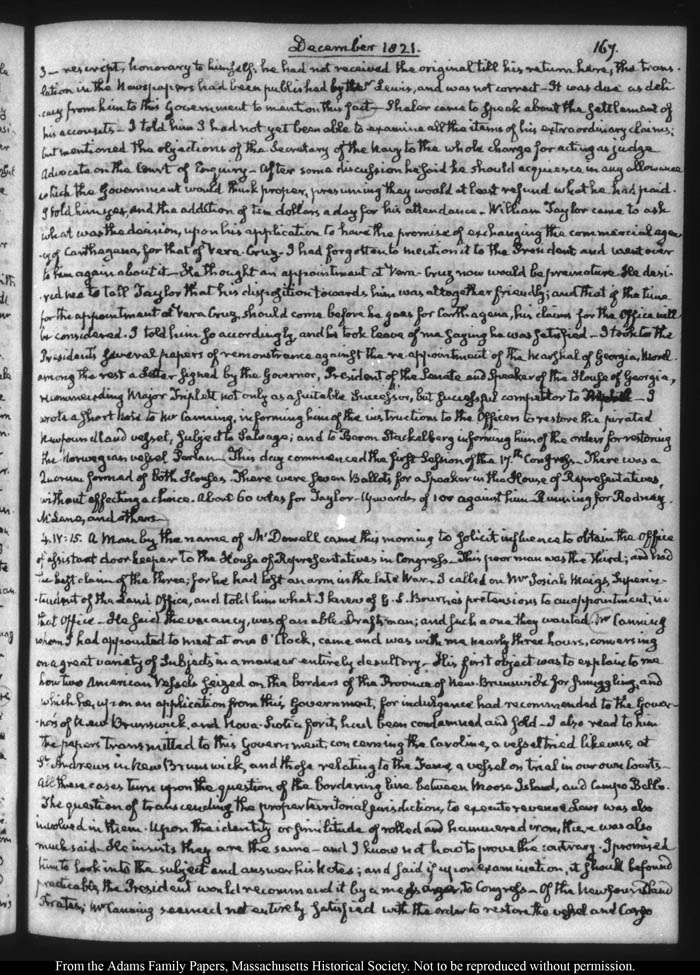 December 1821. 167.
3— rescript, honorary to himself; he had not received the original till his return here, the trans-
lation in the Newspapers had been published by the Lewis, and was not correct— It was due as deli-
cacy from him to this Government to mention this fact— Shaler came to speak about the settlement of
his accounts— I told him I had not yet been able to examine all the items of his extraordinary claims;
but mentioned the objections of the Secretary of the Navy to the whole charge for acting as judge
Advocate on the Court of Enquiry— After some discussion he said he should acquiesce in any allowance
which the Government would think proper, presuming they would at least refund what he has paid.
I told him yes, and the addition of ten dollars a day for his attendance. William Taylor came to ask
what was the decision, upon his application to have the promise of exchanging the commercial agen-
cy of Carthagena, for that of Vera-Cruz. I had forgotten to mention it to the President and went over
to him again about it— He thought an appointment at Vera-Cruz now would be premature. He desi-
red me to tell Taylor that his disposition towards him was altogether friendly; and that if the time
for the appointment at Vera Cruz, should come before he goes for Carthagena, his claims for the Office will
be considered. I told him so accordingly and he took leave of me saying he was satisfied— I took to the
Presidents several papers of remonstrance against the re-appointment of the Marshal of Georgia, Morel.
among the rest a Letter signed by the Governor, President of the Senate and Speaker of the House of Georgia,
recommending Major Triplett not only as a suitable Successor, but successful competitor to — I
wrote a short Note to Mr Canning, informing him of the instructions to the Officers to restore the pirated
Newfoundland vessel, subject to Salvage; and to Baron Stackelberg informing him of the orders for restoring
the Norwegian vessel — This day commenced the first Session of the 17.th Congress— There was a
Quorum formed of both Houses. There were seven Ballots for a Speaker in the House of Representatives,
without effecting a choice. About 60 votes for Taylor— Upwards of 100 against him Running for Rodney.
McLane, and others—
4. IV: 15. A Man by the name of McDowell came this morning to solicit influence to obtain the Office
of assistant door keeper to the House of Representatives in Congress— This poor man was the third; and had
the best claim of the three; for he had lost an arm in the late War— I called on Mr Josiah Meigs, Superin-
tendent of the Land Office, and told him what I knew of G. L. Bourne's pretensions to an appointment, in
that Office— He said the vacancy, was of an able Draftsman; and such a one they wanted. Mr Canning
whom I had appointed to meet at one O'Clock, came and was with me nearly three hours, conversing
on a great variety of Subjects in a manner entirely desultory— His first object was to explain to me
how two American Vessels seized on the borders of the Province of New-Brunswick for smuggling, and
which he, upon an application from this Government, for indulgence had recommended to the Gover-
nors of New Brunswick, and Nova-Scotia for it, had been condemned and sold— I also read to him
the papers transmitted to this Government, concerning the Caroline, a vessel tried likewise, at
St. Andrews in New Brunswick, and those relating to the a vessel on trial in our own Courts—
All these cases turn upon the question of the bordering line between Moose Island, and Campo Bello.
The question of transcending the proper territorial jurisdiction, to execute revenue Laws was also
involved in them. Upon the identity or similitude of rolled and hammered iron, there was also
much said. He insists they are the same— and I know not how to prove the contrary. I promised
him to look into the subject and answer his Notes; and said if upon examination, it should be found
practicable, the President would recommend it by a message to Congress— Of the Newfoundland
Pirates; Mr Canning seemed not entirely satisfied with the order to restore the vessel and Cargo
From the Adams Family Papers, Massachusetts Historical Society. Not to be reproduced without permission.